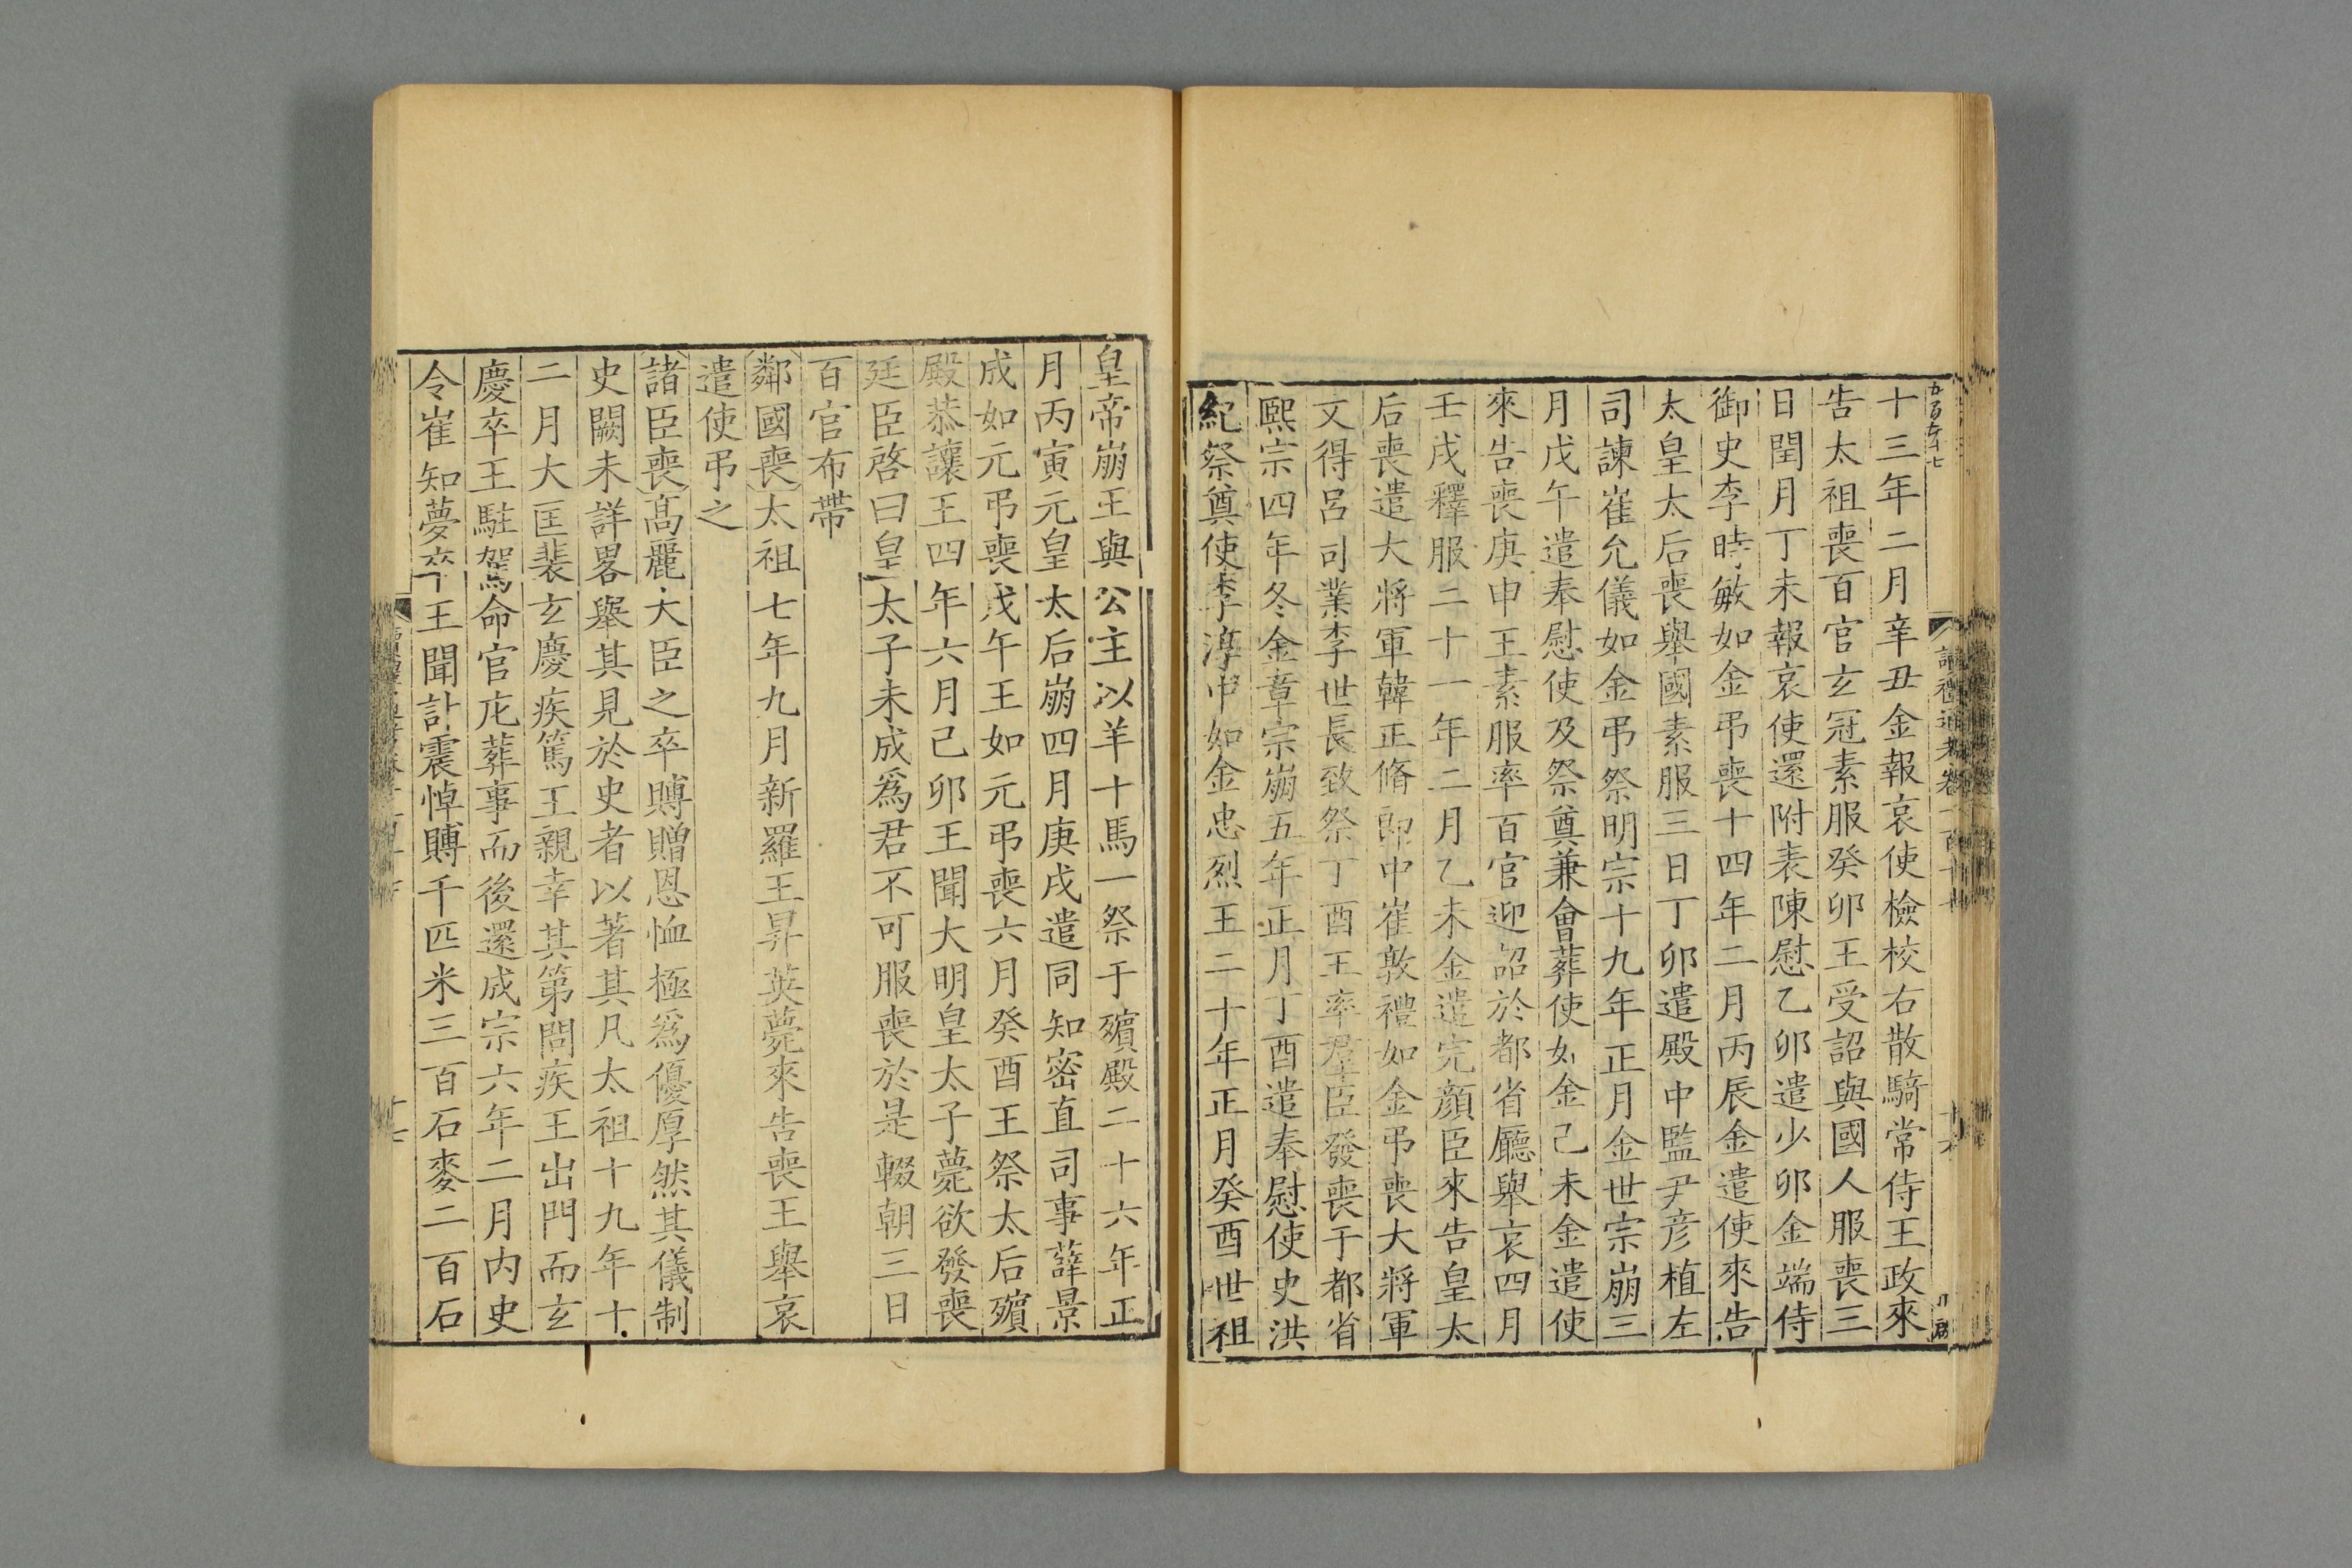 十三年二月辛丑金報哀使檢校右散騎常侍王政來
告太祖喪百官玄冠素服癸卯王受詔與國人服喪三
日閏月丁未報哀使還附表陳慰乙卯遣少卯金端侍
御史李時敏如金弔喪十四年二月丙辰金遣使來告
太皇太后喪舉國素服三日丁卯遣殿中監尹彦植左
司諫崔允儀如金弔祭明宗十九年正月金世宗崩三
月戊午遣奉慰使及祭奠兼會葬使如金己未金遣使
來告喪庚申王素服率百官迎詔於都省廳舉哀四月
壬戌釋服二十一年二月乙未金遣完顏臣來告皇太
后喪遣大將軍韓正脩郎中崔敦禮如金弔喪大將軍
文得呂司業李世長致祭丁酉王率羣臣發喪于都省
熙宗四年冬金章宗崩五年正月丁酉遣奉慰使史洪
紀祭奠使李淳中如金忠烈王二十年正月癸酉世祖
皇帝崩王與公主以羊十馬一祭于殯殿二十六年正
月丙寅元皇太后崩四月庚戌遣同知密直司事薛景
成如元弔喪戊午王如元弔喪六月癸酉王祭太后殯
殿恭讓王四年六月己卯王聞大明皇太子薨欲發喪
廷臣啓曰皇太子未成爲君不可服喪於是輟朝三日
百官布帶
鄰國喪太祖七年九月新羅王昇英薨來告喪王舉哀
遣使弔之
諸臣喪高麗大臣之卒賻贈恩恤極爲優厚然其儀制
史闕未詳畧舉其見於史者以著其凡太祖十九年十
二月大匡裴玄慶疾篤王親幸其第問疾王出門而玄
慶卒王駐駕命官庀葬事而後還成宗六年二月內史
令崔知夢卒王聞訃震悼賻千匹米三百石麥二百石